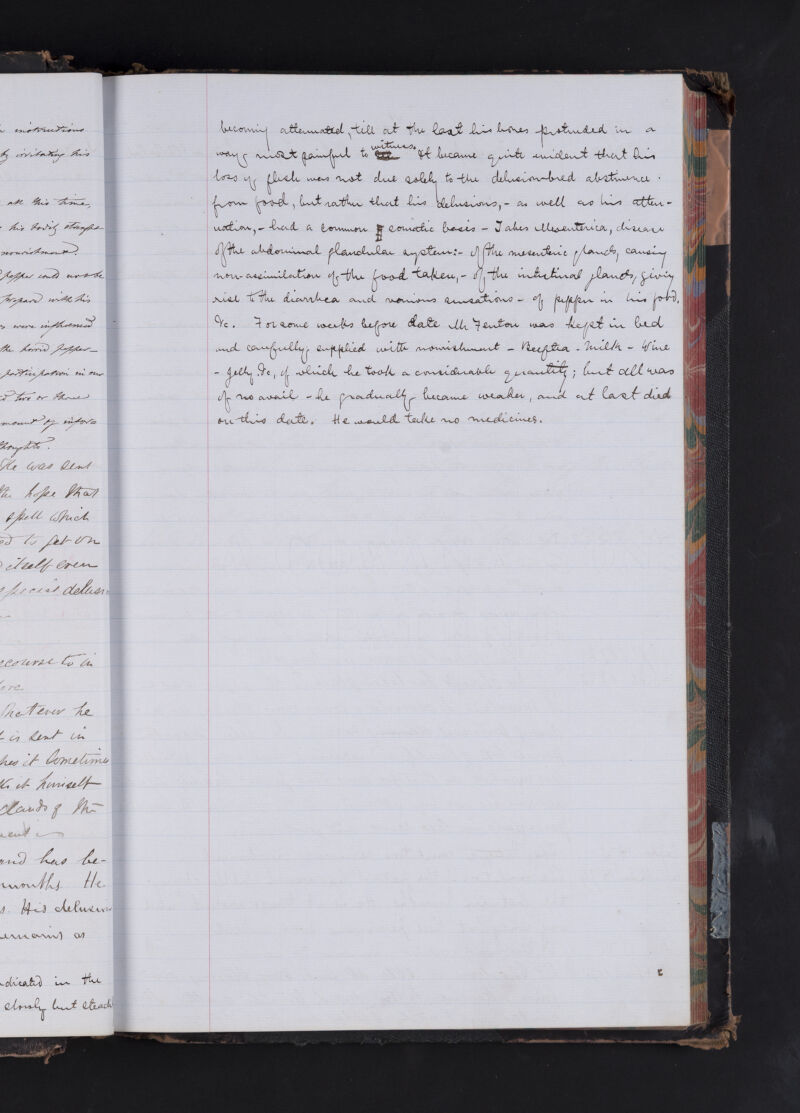 instructions
by irritating his
at this time,
his bodily
nourishment.
pepper and
with his
were
the horrid pepper-
participation in our
two or three
amount of
thoughts.
He was sent
the hope that
spell which
to get on
itself even
special
recourse to in
Whatever he
it is sent in
it sometimes
it himself
and has be-
months. He
His delusion
remains as
indicated in the
slowly but
becoming attenuated, till at the last his bones protruded in a
way most painful to witness. It became quite evident that his
loss of flesh was not due solely to the delusion-bred abstinence
from food, but rather that his delusions, - as well as his atten-
uation, - had a common somatic basis - Tabes Mesenterica, disease
of the abdominal glandular system:- of the mesenteric glands, causing
non-assimilation of the food taken, - of the intestinal glands, giving
rise to the diarrhea and various sensations - of pepper in his food,
&c. For some weeks before date Mr Fenton was kept in bed
and carefully supplied with nourishment - Beeftea - Milk - Wine
- Jelly &c, of which he took a considerable quantity; but all was
of no avail - he gradually became weaker, and at last died
on this date. He would take no medicines.